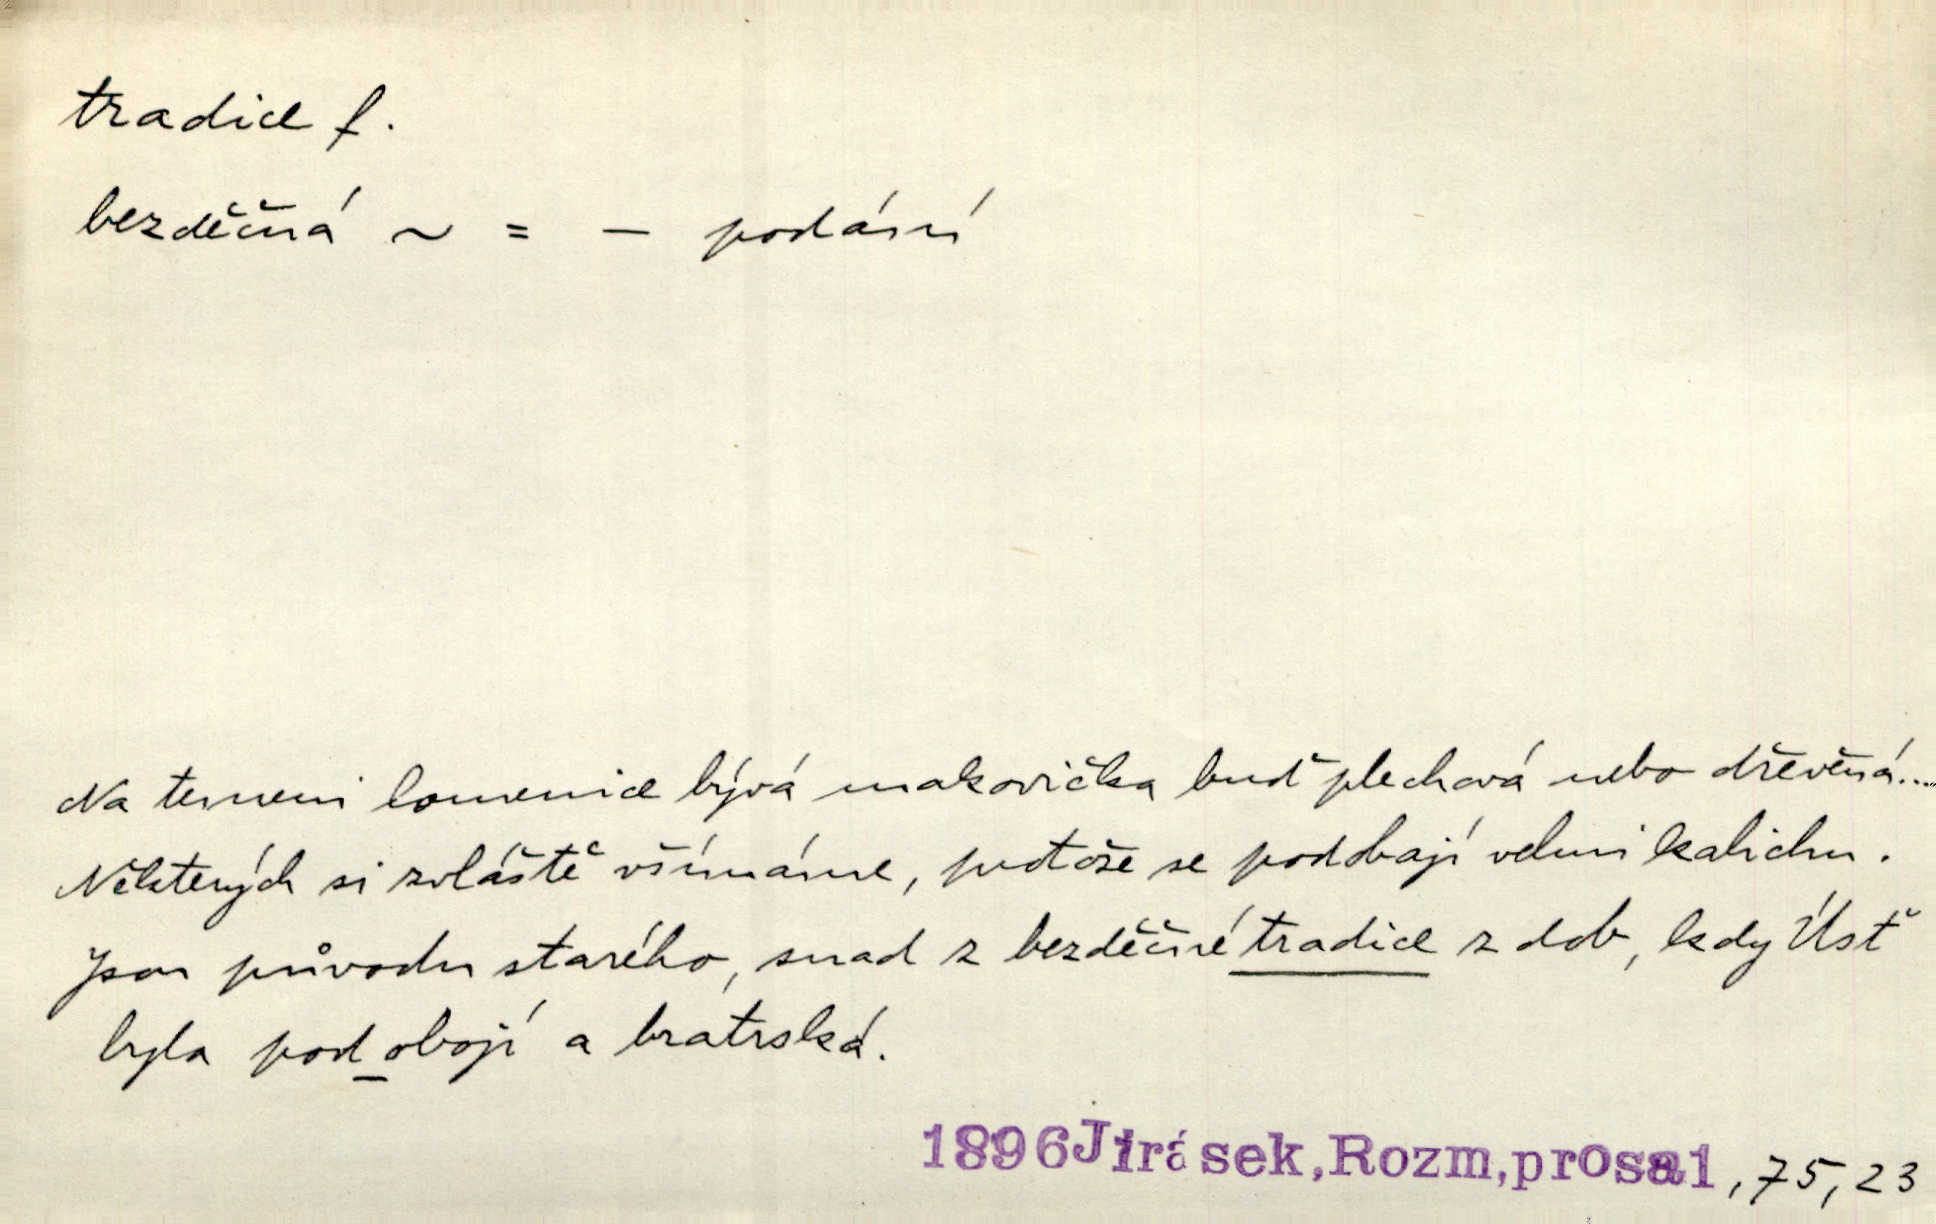 tradice f.
bezděčná ~ = — podání
Na temeni lomenice bývá makovička buď plechová nebo dřevěná....
Některých si zvláště všímáme, protože se podobají velmi kalichu.
Jsou původu starého, snad z bezděčné tradice z dob, kdy Úsť
byla pod obojí a bratrská.
1896 Jirásek, Rozm, prosa 1, 75, 23